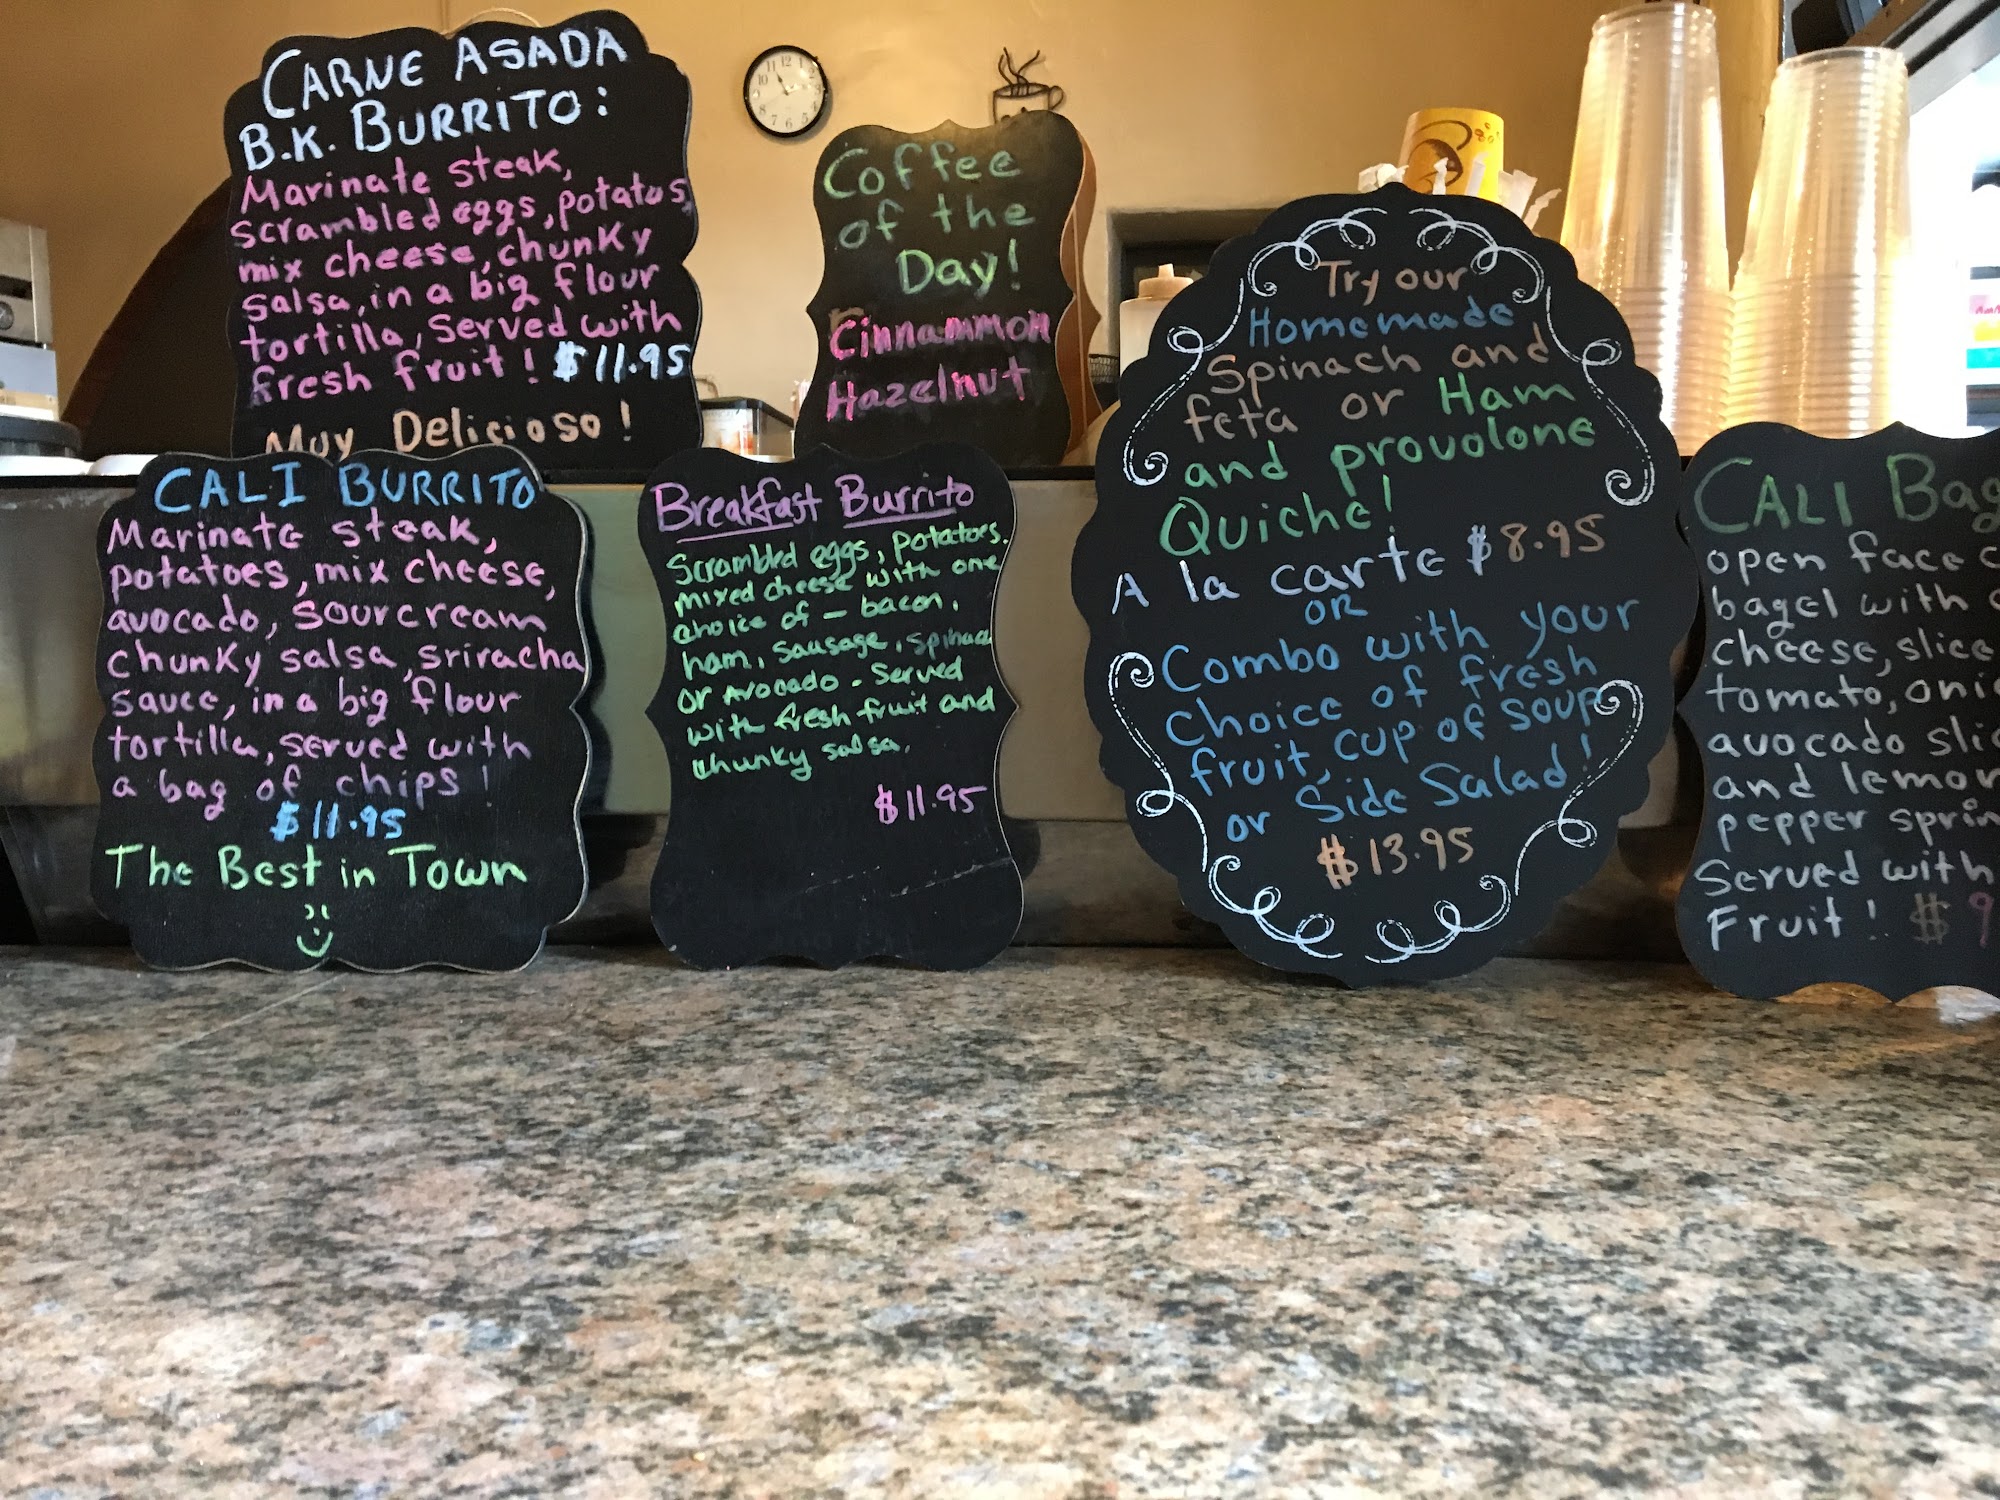 CARNE ASADA
B.K. BURRITO:
Marinate steak,
scrambled eggs, potatos,
mix cheese, chunky
salsa, in a big flour
tortilla, served with
fresh fruit! $11.95
Muy Delicioso!
Coffee
of the
Day!
Cinnammon
Hazelnut
CALI BURRITO
Marinate steak,
potatoes, mix cheese,
avocado, sour cream
chunky salsa, sriracha
sauce, in a big flour
tortilla, served with
a bag of chips!
$11.95
The Best in Town
Breakfast Burrito
Scrambled eggs, potatoes.
mixed cheese with one
choice of - bacon.
ham. sausage. spinac
or Avocado. Served
with fresh fruit and
chunky salsa.
$11.95
Try our
Homemade
Spinach and
feta or Ham
and provolone
Quiche!
A la carte $8.95
OR
Combo with your
Choice of fresh
fruit, cup of soup
or Side Salad!
$13.95
CALI Bag
open face
bagel with
cheese, slice
tomato, oni
avocado sli
and lemon
pepper sprin
Served with
Fruit! $9